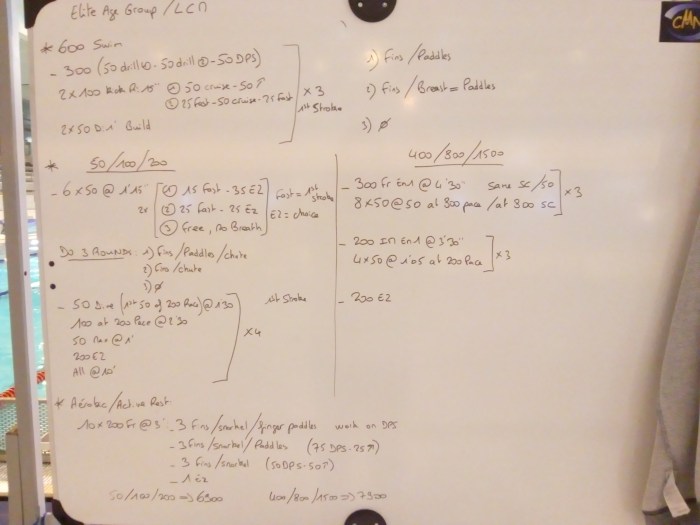 Elite Age Group / LCM
* 600 Swim
- 300 (50 drill - 50 drill - 50 DPS)
2 x 100 Kick R: 15" ① 50 cruise - 50↗
② 25 Fast - 50 cruise - 25 Fast
x 3
1st Stroke
2 x 50 R: 1' Build
1) Fins / Paddles
2) Fins / Breast = Paddles
3) Ø
* 50/100/200
- 6 x 50 @ 1'15"
2x
① 15 Fast - 35 EZ
② 25 Fast - 25 Ez
③ Free, no Breath
Fast = 1st stroke
EZ = choice
Do 3 Rounds: 1) Fins / Paddles / chute
2) Fins / chute
3) Ø
- 50 Dive (1st 50 of 200 Pace) @ 1'30
1st Stroke
100 at 200 Pace @ 2'30
50 Max @ 1'
200 EZ
All @ 10'
x 4
400/800/1500
- 300 Fr En1 @ 4'30" same SC/50
8 x 50 @ 50 at 800 pace / at 800 SC
x 3
- 200 IM En1 @ 3'30"
4 x 50 @ 1'05 at 200 Pace
x 3
- 200 EZ
* Aerobic / Active Rest
10 x 200 Fr @ 3' - 3 Fins / snorkel / finger paddles work on DPS
- 3 fins / snorkel / Paddles (75 DPS - 25↗)
- 3 fins / snorkel (50 DPS - 50↗)
- 1 Ez
50/100/200 => 6300 400/800/1500 => 7300